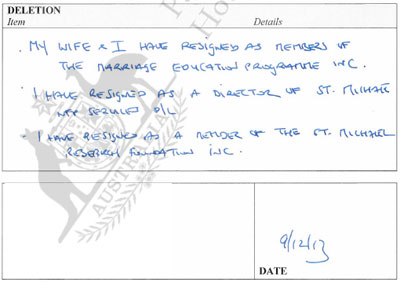 DELETION
Item Details
. MY WIFE & I HAVE RESIGNED AS MEMBERS OF
THE MARRIAGE EDUCATION PROGRAMME INC.
. I HAVE RESIGNED AS A DIRECTOR OF ST. MICHAEL
SERVICES P/L
. I HAVE RESIGNED AS A MEMBER OF THE ST. MICHAEL
RESEARCH FOUNDATION INC.
AUSTRALIA
9/12/13
DATE